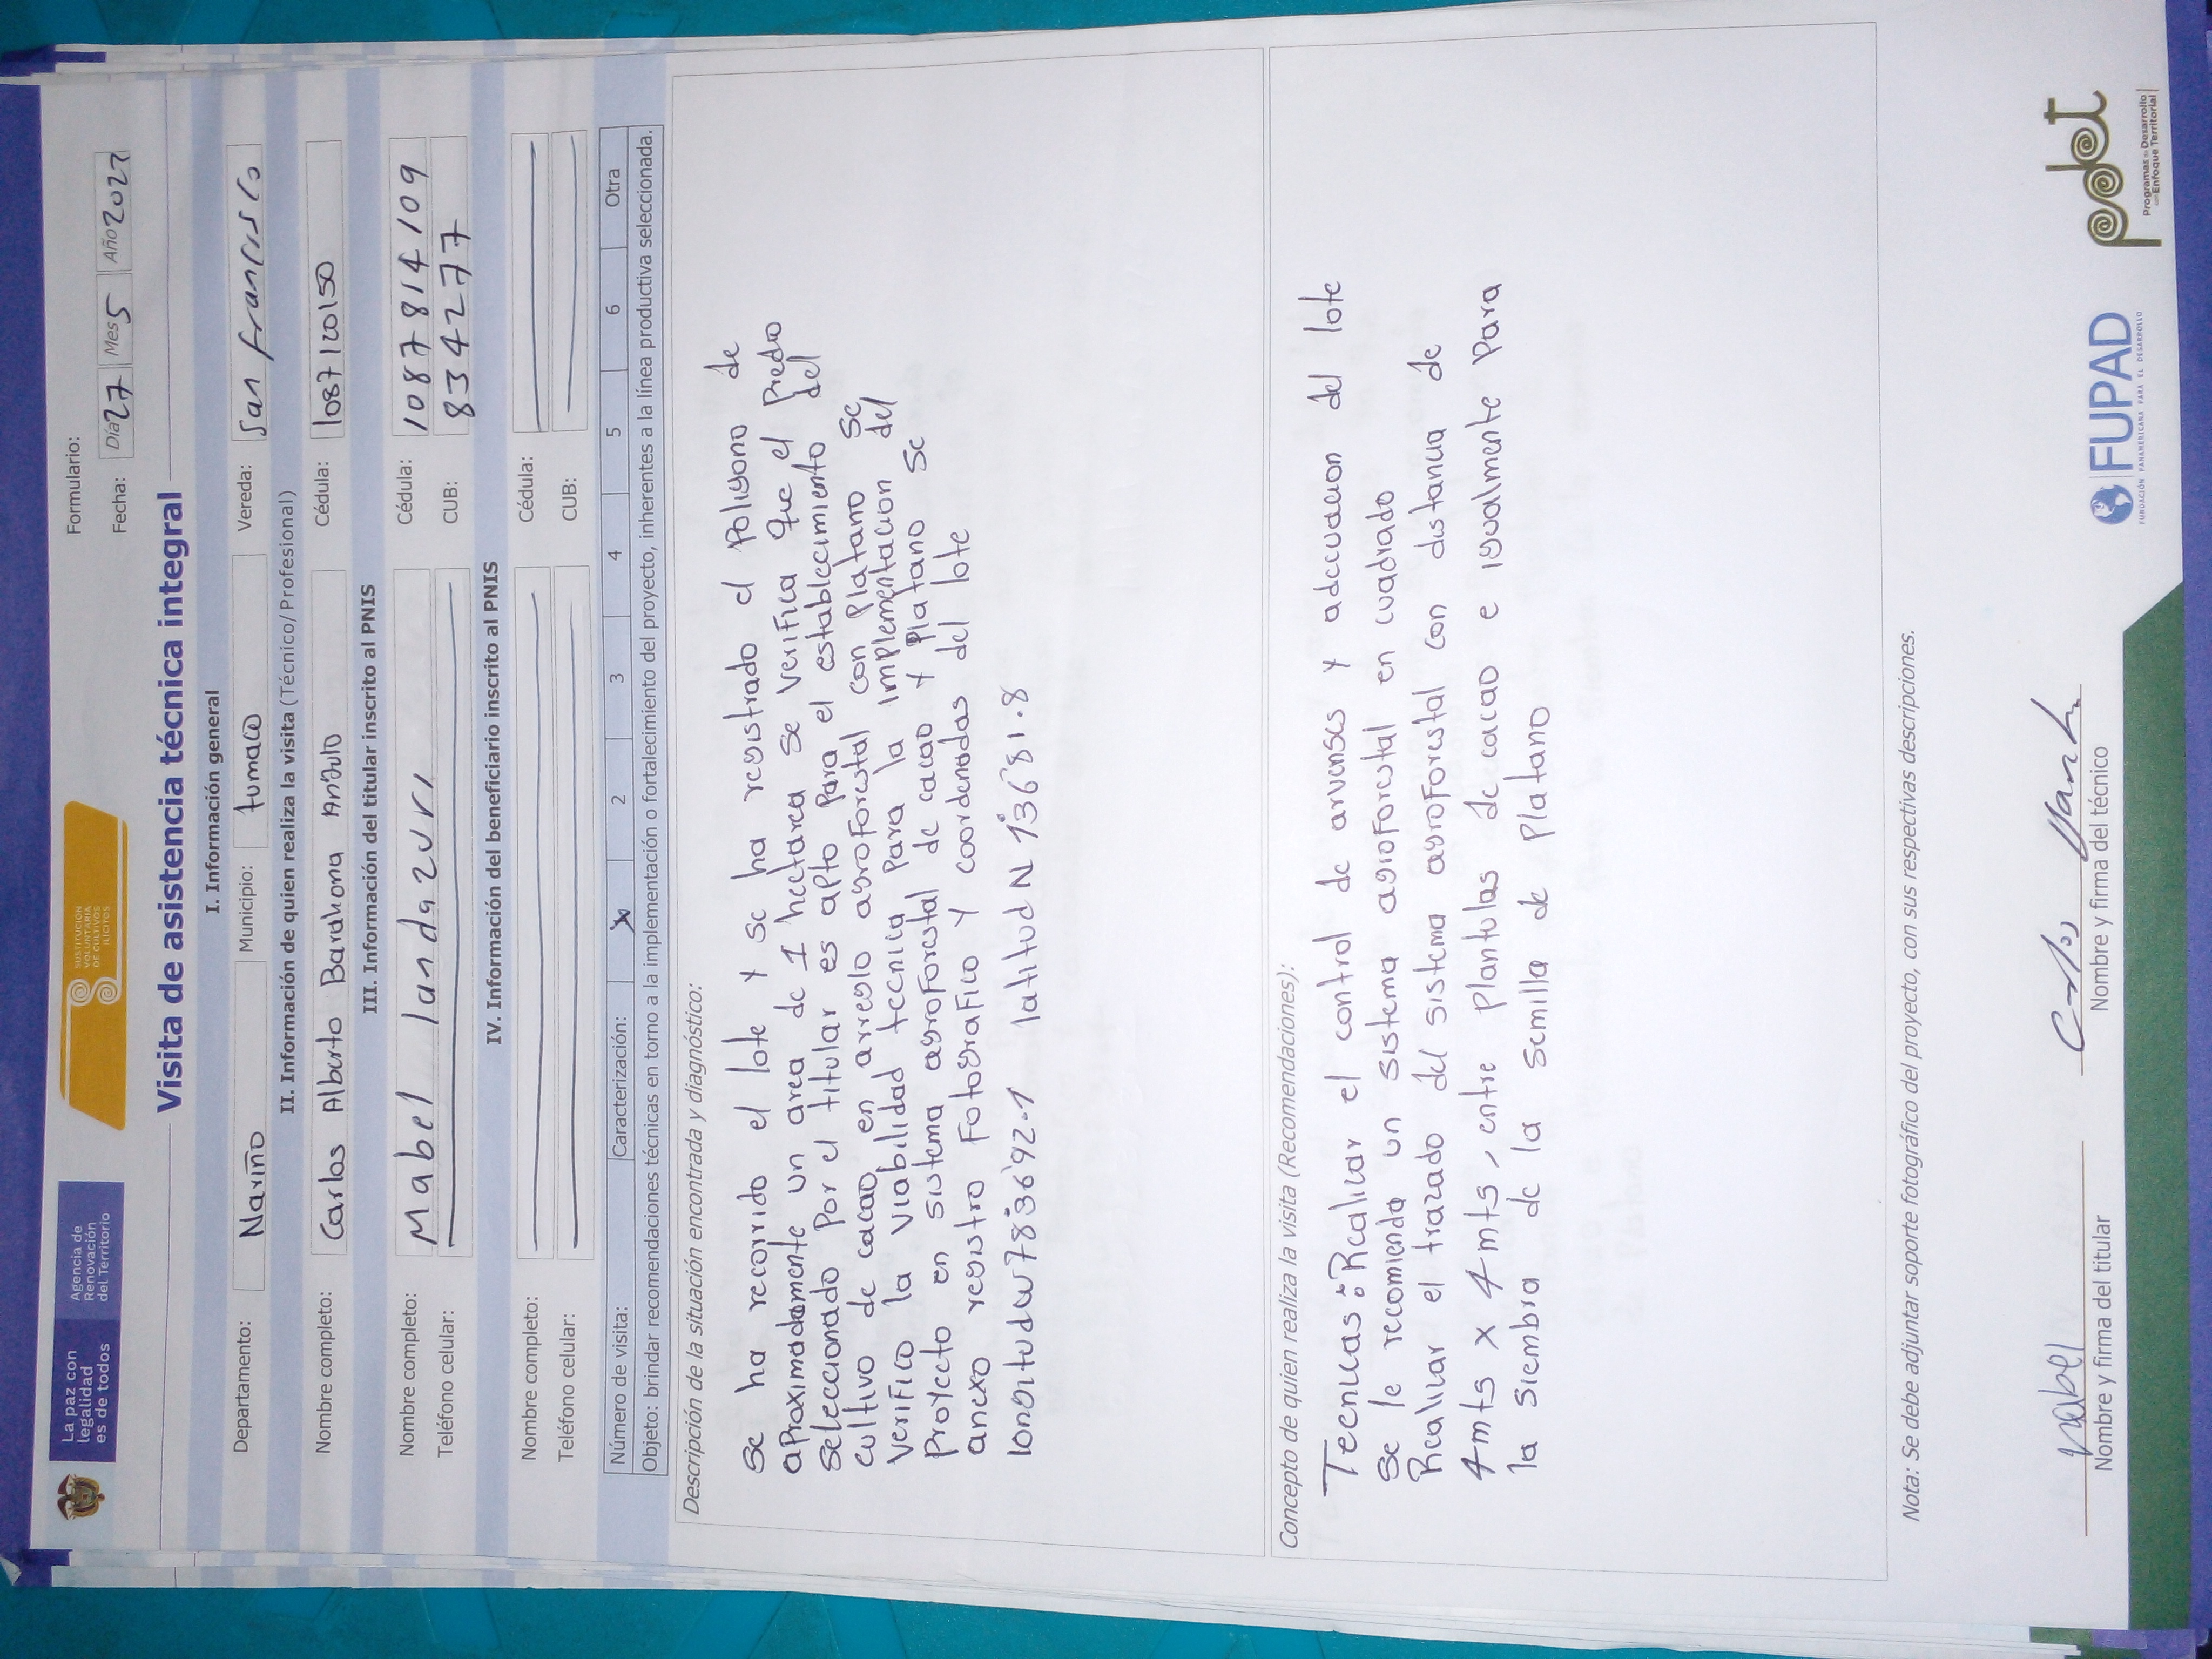 La paz con
legalidad
es de todos
Agencia de
Renovación
del Territorio
SUSTITUCIÓN
VOLUNTARIA
DE CULTIVOS
ILÍCITOS
Formulario:
Fecha: Día 27 Mes 5 Año 2022
Visita de asistencia técnica integral
I. Información general
Departamento: Nariño Municipio: tumaco Vereda: San francisco
II. Información de quien realiza la visita (Técnico/Profesional)
Nombre completo: Carlos Alberto Barahona Angulo Cédula: 1087120150
III. Información del titular inscrito al PNIS
Nombre completo: Mabel landazuri Cédula: 1087814109
Teléfono celular: CUB: 8342777
IV. Información del beneficiario inscrito al PNIS
Nombre completo: Cédula:
Teléfono celular: CUB:
Número de visita: Caracterización: X 2 3 4 5 6 Otra
Objeto: brindar recomendaciones técnicas en torno a la implementación o fortalecimiento del proyecto, inherentes a la línea productiva seleccionada.
Descripción de la situación encontrada y diagnóstico:
Se ha recorrido el lote y se ha registrado el Poligono de
aproximadamente un area de 1 hectarea se verifica que el Predio
seleccionado por el titular es apto para el establecimiento del
cultivo de cacao en arreglo agroforestal con Platano se
verifico la viabilidad tecnica para la implementacion del
proyecto en sistema agroforestal de cacao y Platano se
anexo registro fotografico y coordenadas del lote
longitud W 78°36'92.1 latitud N 1°36'81.8
Concepto de quien realiza la visita (Recomendaciones):
Tecnicas: Realizar el control de arvenses y adecuacion del lote
se le recomienda un sistema agroforestal en cuadrado
Realizar el trazado del sistema agroforestal con distancia de
4 mts x 4 mts, entre plantulas de cacao e igualmente para
la siembra de la semilla de Platano
Nota: Se debe adjuntar soporte fotográfico del proyecto, con sus respectivas descripciones.
Mabel
Nombre y firma del titular
Nombre y firma del técnico
FUPAD
FUNDACIÓN PANAMERICANA PARA EL DESARROLLO
pdet
Programas de Desarrollo
con Enfoque Territorial